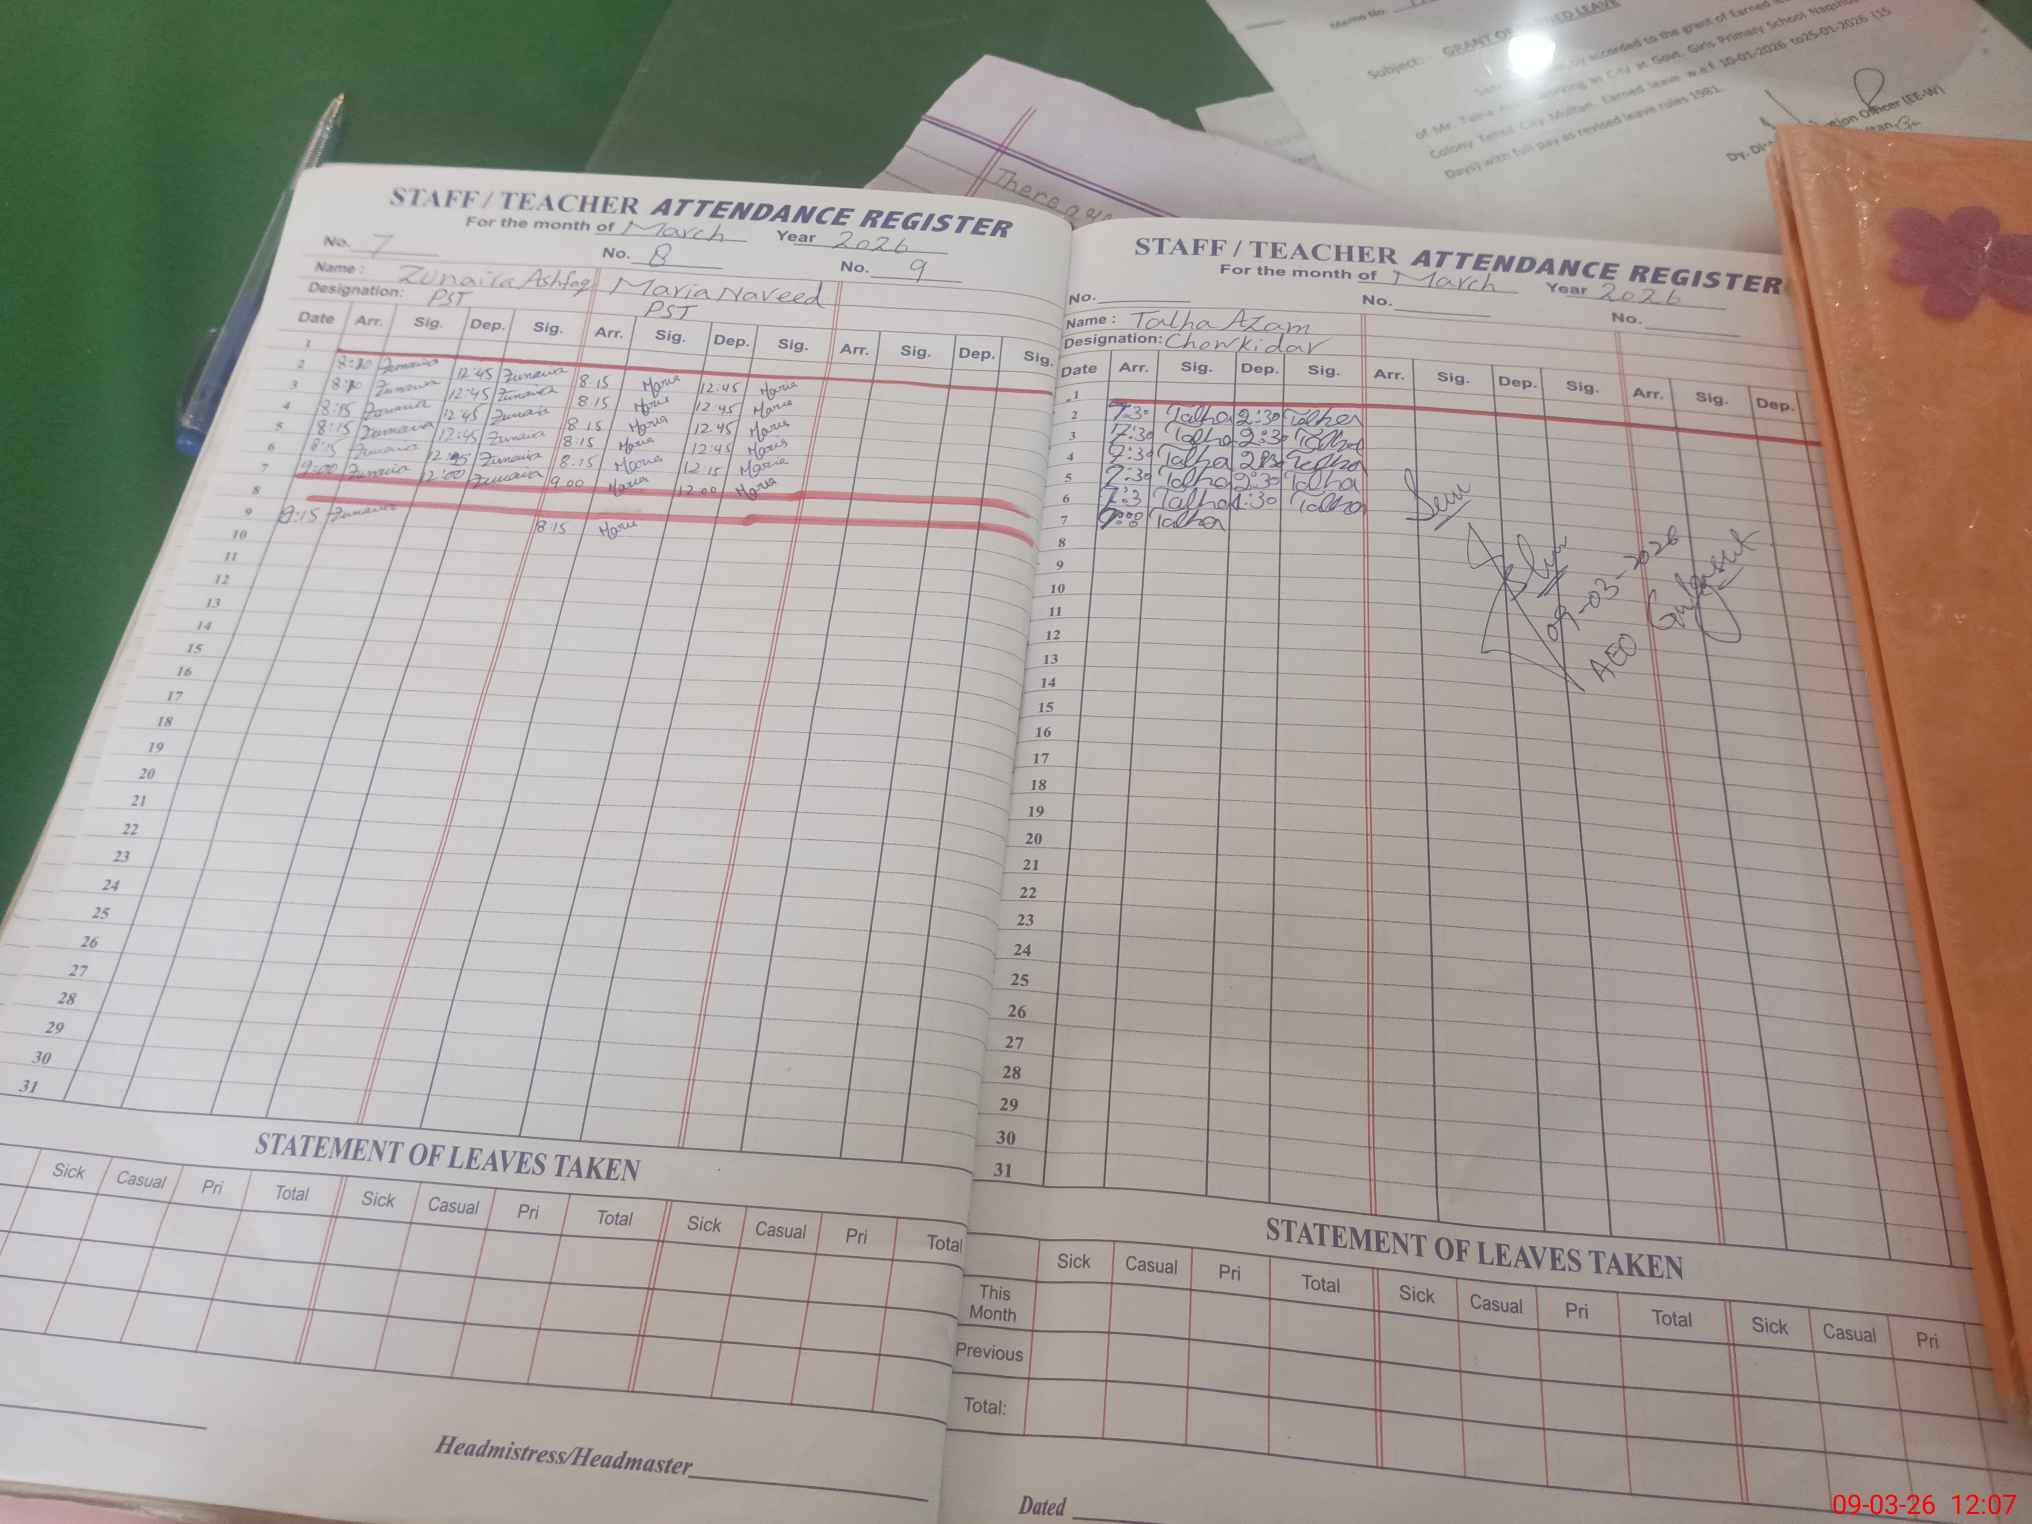 Memo No.
Subject: GRANT OF EARNED LEAVE
accorded to the grant of Earned
of Mr. Talha working in City at Govt. Girls Primary School
Colony Tehsil City Multan. Earned leave w.e.f 10-01-2026 to25-01-2026 (15
Days) with full pay as revised leave rules 1981.
Officer (EE-W)
There
STAFF / TEACHER ATTENDANCE REGISTER
For the month of March Year 2026
No. 7 No. 8 No. 9
Name: Zunaira Ashfaq Maria Naveed
Designation: PST PST
Date Arr. Sig. Dep. Sig. Arr. Sig. Dep. Sig. Arr. Sig. Dep. Sig.
1
2 Zunaira 12:45 Zunaira 8:15 Maria 12:45 Maria
3 Zunaira 12:45 Zunaira 8:15 Maria 12:45 Maria
4 8:15 Zunaira 12:45 Zunaira 8:15 Maria 12:45 Maria
5 8:15 Zunaira 12:45 Zunaira 8:15 Maria 12:45 Maria
6 8:15 Zunaira Zunaira 8:15 Maria 12:15 Maria
7 9:00 Zunaira 12:00 Zunaira 9:00 Maria 12:00 Maria
8
9 8:15 Zunaira 8:15 Maria
10
11
12
13
14
15
16
17
18
19
20
21
22
23
24
25
26
27
28
29
30
31
STATEMENT OF LEAVES TAKEN
Sick Casual Pri Total Sick Casual Pri Total Sick Casual Pri Total
Headmistress/Headmaster
STAFF / TEACHER ATTENDANCE REGISTER
For the month of March Year 2026
No. No. No.
Name: Talha Azam
Designation: Chowkidar
Date Arr. Sig. Dep. Sig. Arr. Sig. Dep. Sig. Arr. Sig. Dep.
1
2 7:30 Talha 2:30 Talha
3 7:30 Talha 2:30 Talha
4 7:30 Talha 2:30 Talha
5 7:30 Talha 2:30 Talha
6 7:3 Talha 1:30 Talha
7 Talha
8
9
10
11
12
13
14
15
16
17
18
19
20
21
22
23
24
25
26
27
28
29
30
31
Seen
09-03-2026
AEO Gulgasht
STATEMENT OF LEAVES TAKEN
Sick Casual Pri Total Sick Casual Pri Total Sick Casual Pri
This Month
Previous
Total:
Dated
09-03-26 12:07